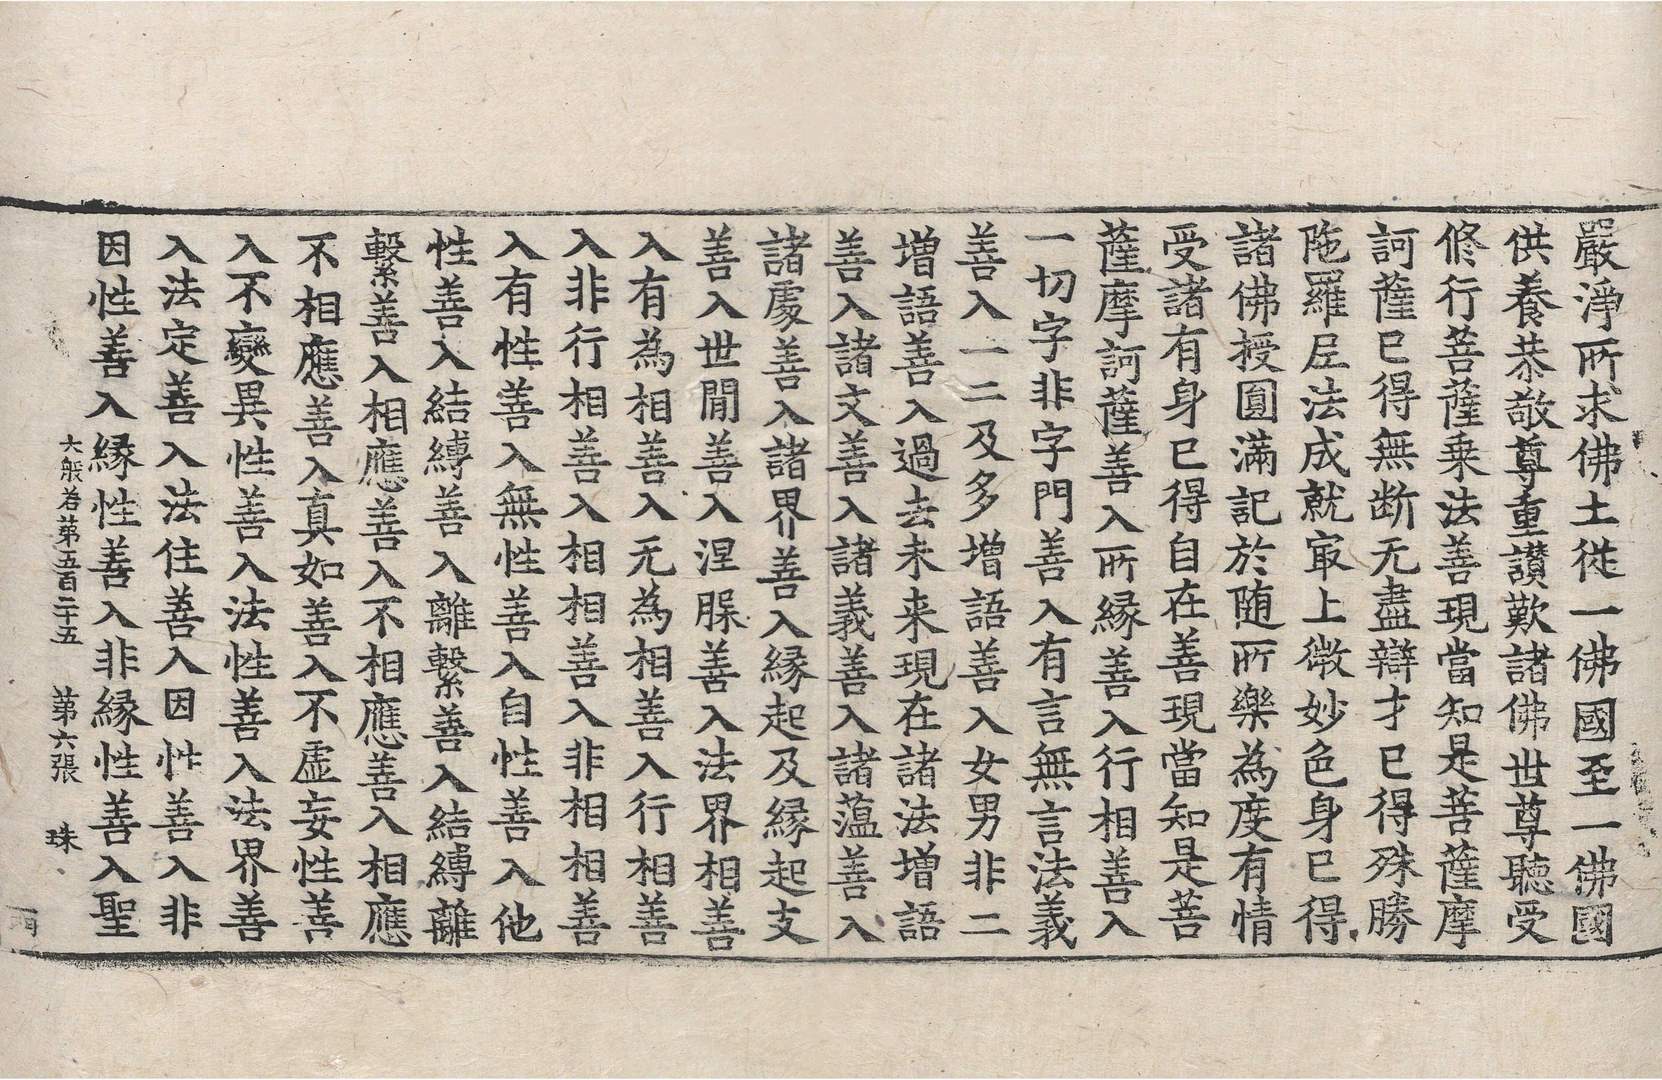 嚴淨所求佛土從一佛國至一佛國
供養恭敬尊重讃歎諸佛世尊聽受
修行菩薩乗法善現當知是菩薩摩
訶薩已得無断无盡辯才已得殊勝
陁羅尼法成就㝡上微妙色身已得
諸佛授圎滿記於随所樂為度有情
受諸有身已得自在善現當知是菩
薩摩訶薩善入所縁善入行相善入
一切字非字門善入有言無言法義
善入一二及多增語善入女男非二
增語善入過去未来現在諸法增語
善入諸文善入諸義善入諸蕰善入
諸處善入諸界善入縁起及縁起支
善入世閒善入涅縏善入法界相善
入有為相善入无為相善入行相善
入非行相善入相相善入非相相善
入有性善入無性善入自性善入他
性善入結縛善入離繫善入結縛離
繫善入相應善入不相應善入相應
不相應善入真如善入不虛妄性善
入不變異性善入法性善入法界善
入法定善入法住善入因性善入非
因性善入縁性善入非縁性善入聖
大般若第五百二十五　第六張　珠